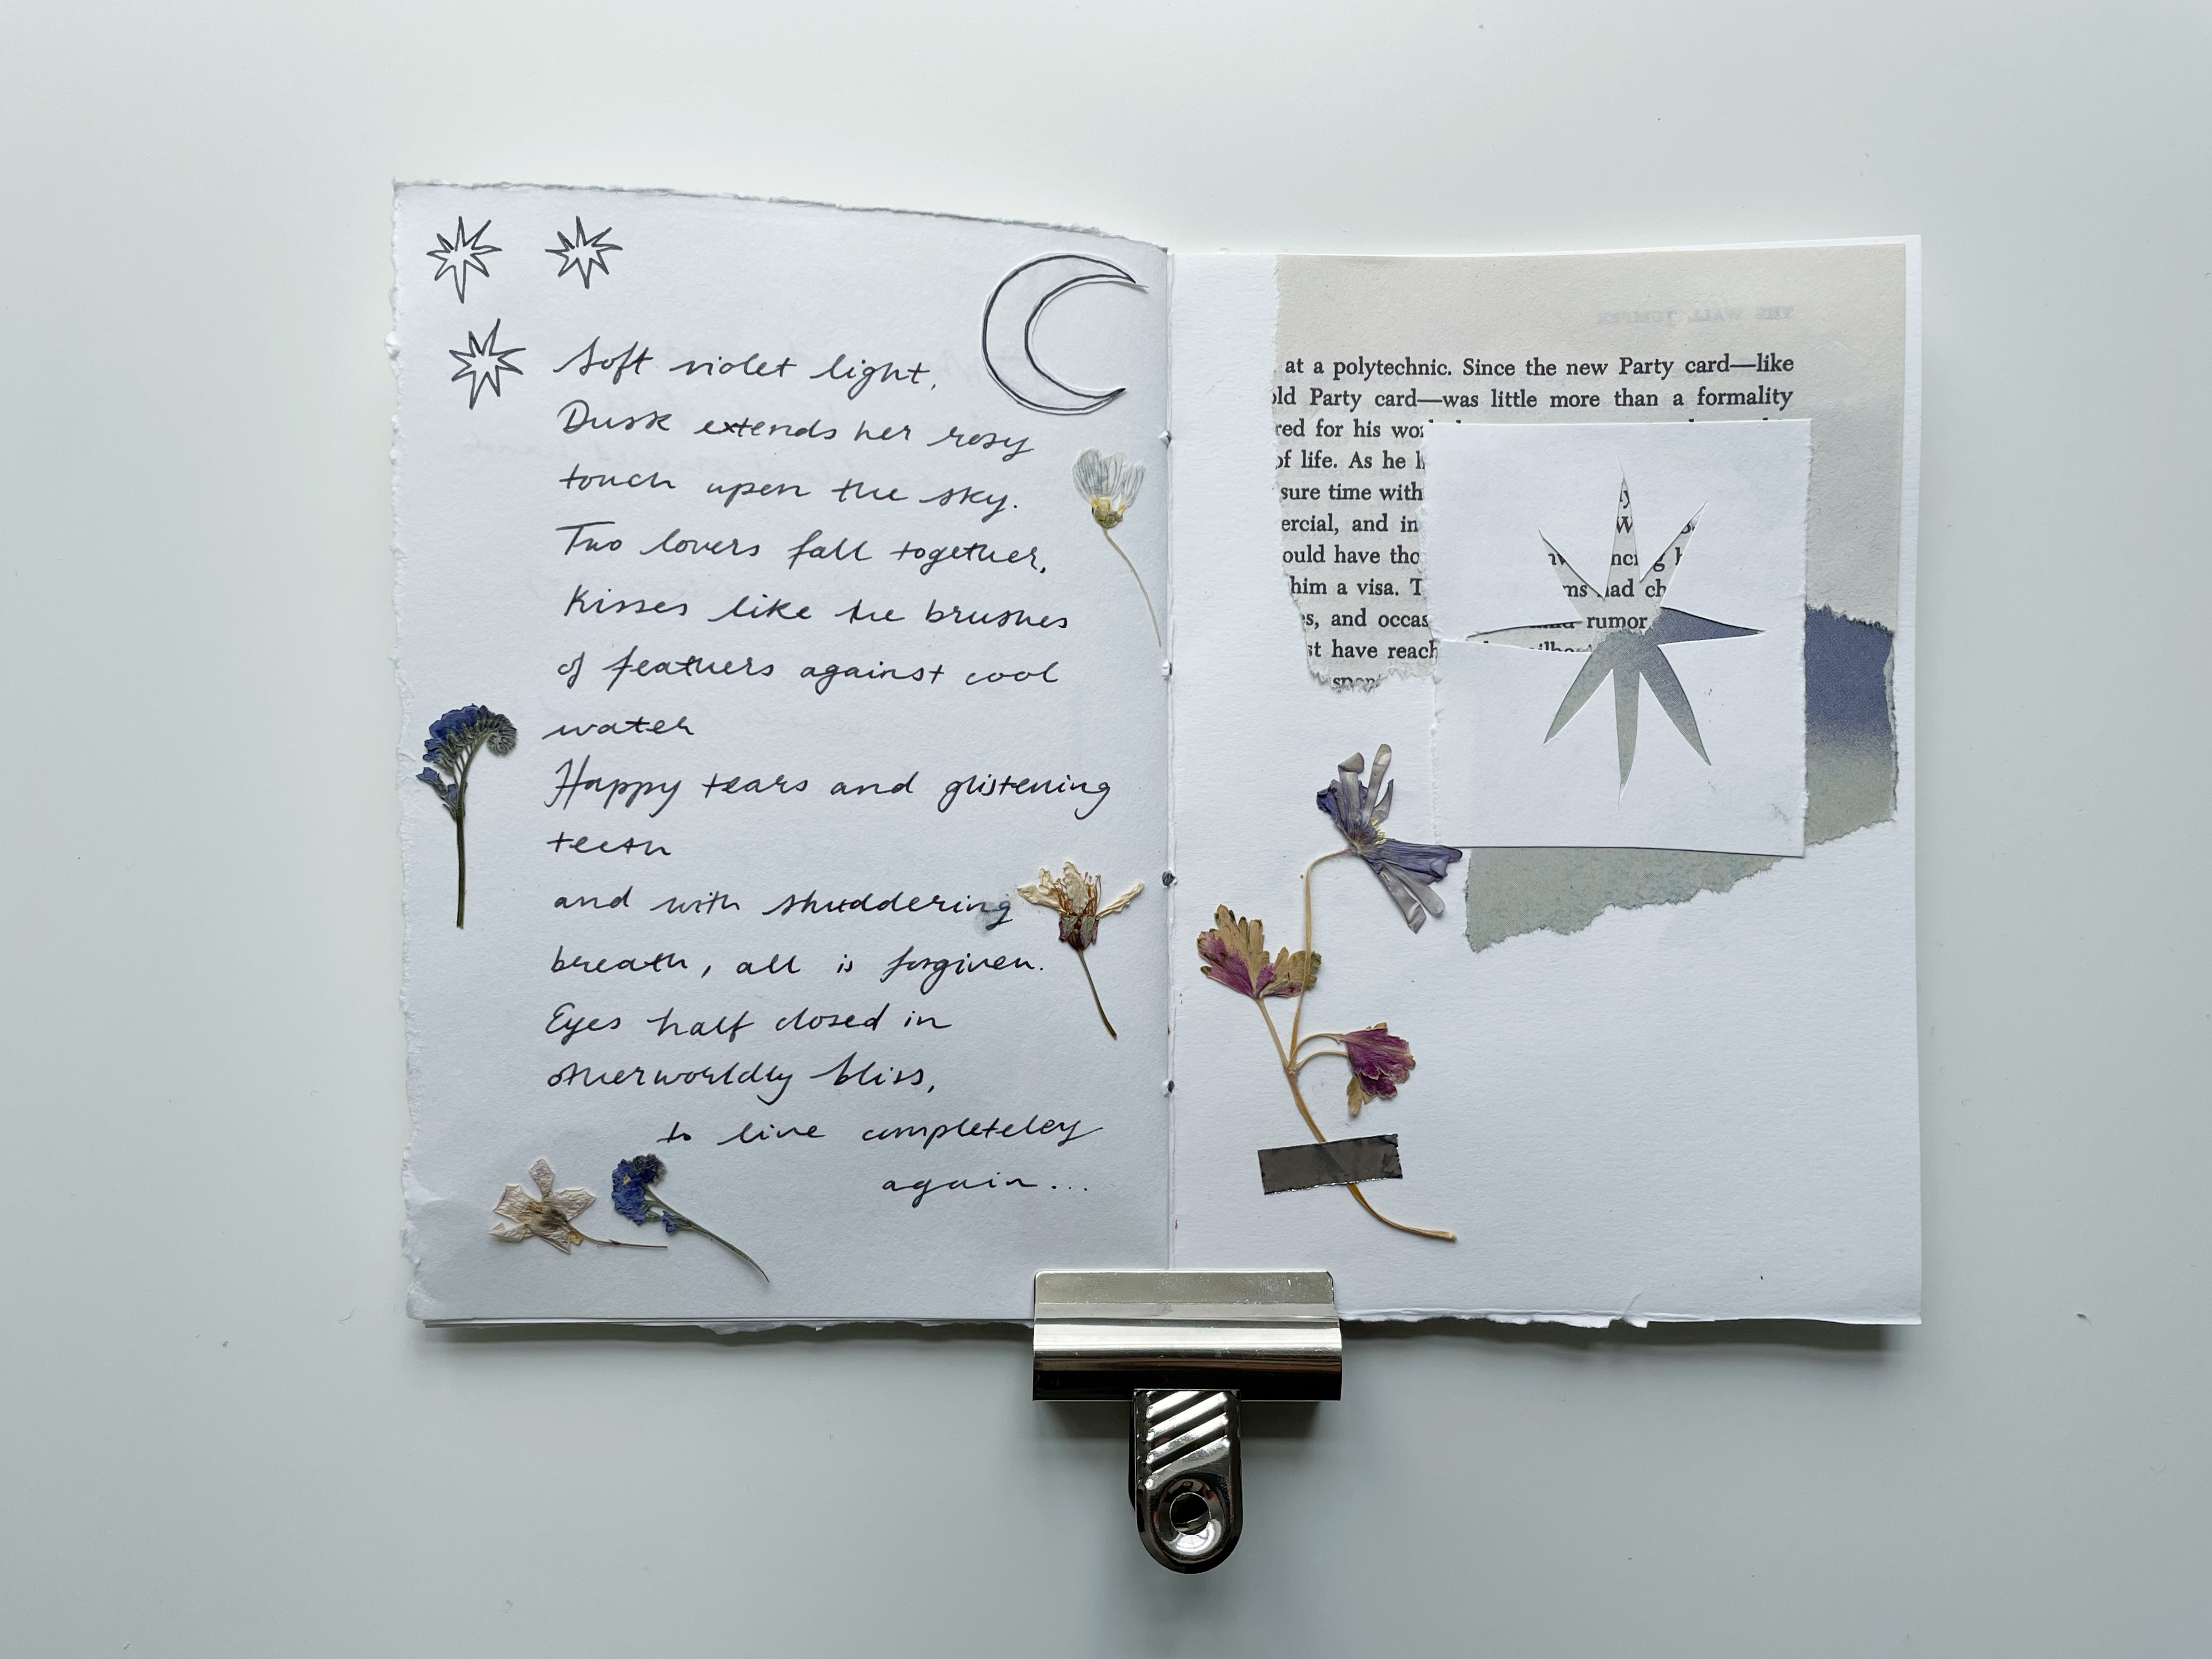 Soft violet light,
Dusk extends her rosy
touch upon the sky.
Two lovers fall together,
Kisses like the brushes
of feathers against cool
water
Happy tears and glistening
teeth
and with shuddering
breath, all is forgiven.
Eyes half closed in
otherworldly bliss,
to live completeley
again...
THE WALL JUMPER
at a polytechnic. Since the new Party card—like
old Party card—was little more than a formality
red for his
of life. As he
sure time with
ercial, and in
ould have
him a visa.
es, and
st have
rumor